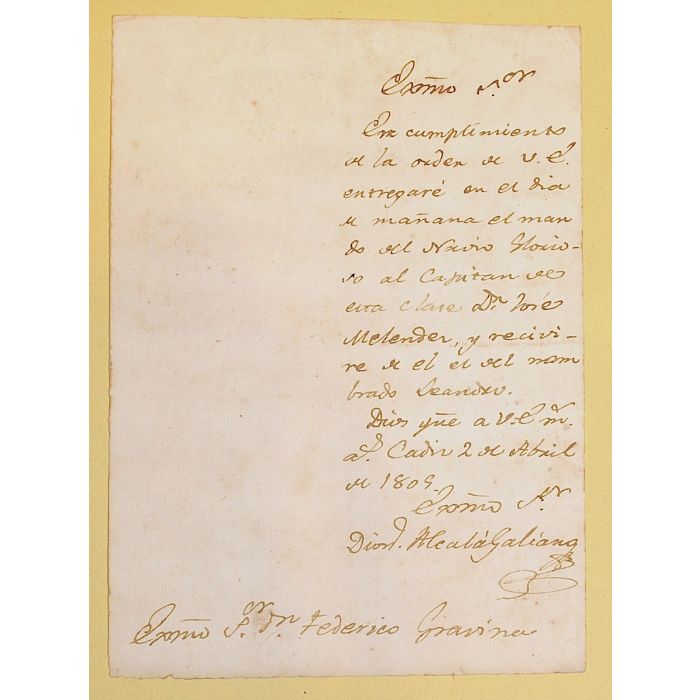 Exmo Sor
En cumplimiento
de la orden de V. E.
entregaré en el dia
de mañana el man
do del Navio Glorio-
so al Capitan de
esta clase Dn José
Melendez, y recivi-
re de el el del nom
brado Leandro.
Dios gũe a V. E. ms.
as. Cadiz 2 de Abril
de 1805.
Exmo Sr
Dionº. Alcalá Galiano
Exmo Sor. Dn. Federico Gravina